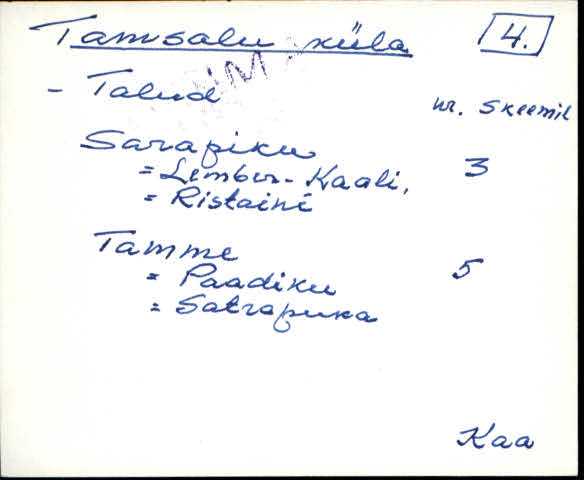 Tamsalu küla 4.
- Talud nr. skeemil
Sarapiku 3
= Lember-Kaali,
= Ristaini
Tamme 5
= Paadiku
= Satrapuka
Kaa